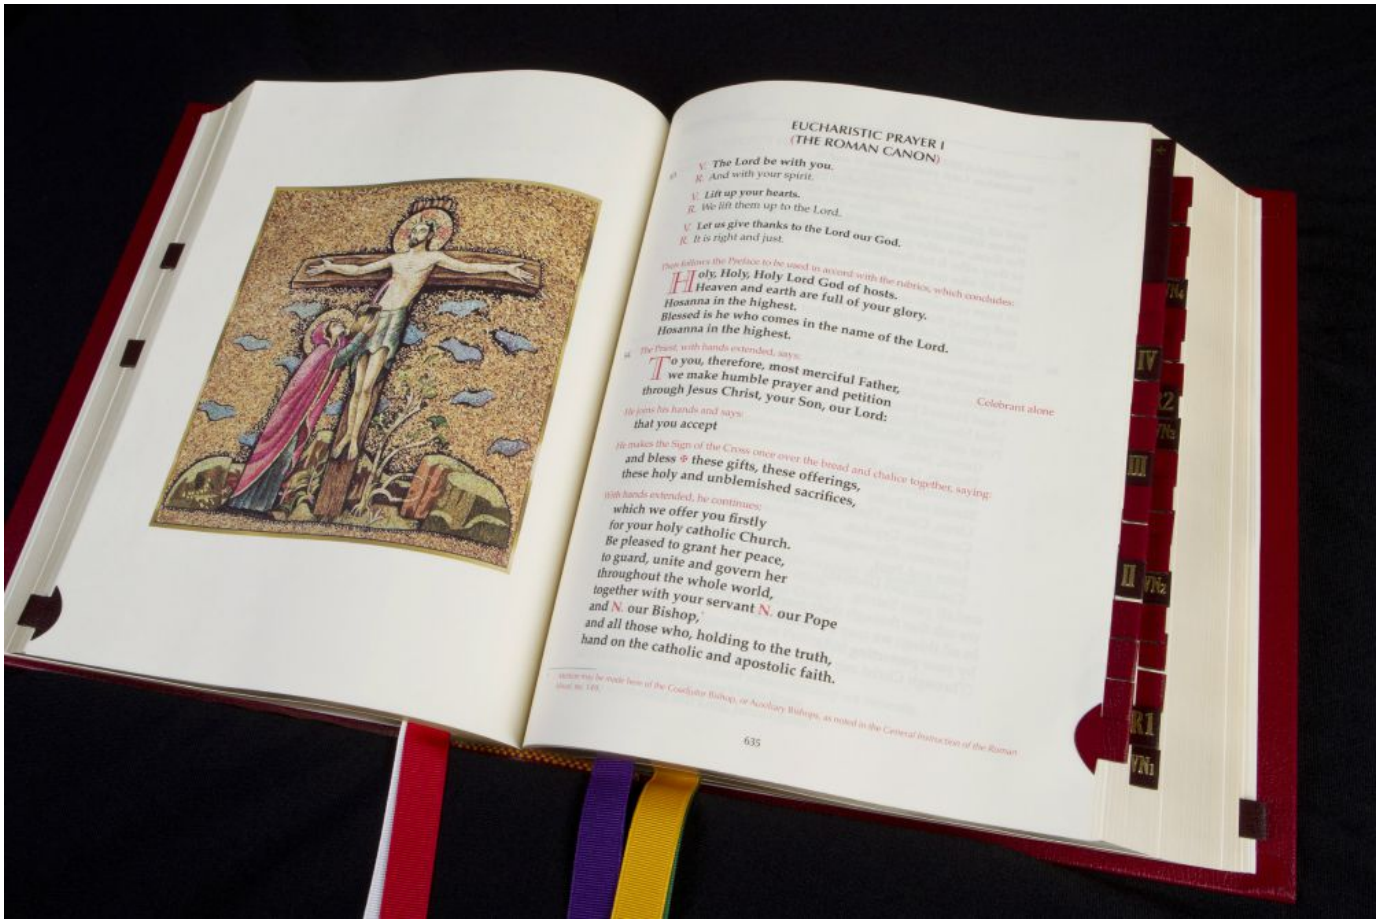 EUCHARISTIC PRAYER I
(THE ROMAN CANON)
V. The Lord be with you.
R. And with your spirit.
V. Lift up your hearts.
R. We lift them up to the Lord.
V. Let us give thanks to the Lord our God.
R. It is right and just.
Then follows the Preface to be used in accord with the rubrics, which concludes:
Holy, Holy, Holy Lord God of hosts.
Heaven and earth are full of your glory.
Hosanna in the highest.
Blessed is he who comes in the name of the Lord.
Hosanna in the highest.
The Priest, with hands extended, says:
To you, therefore, most merciful Father,
we make humble prayer and petition
through Jesus Christ, your Son, our Lord:
Celebrant alone
He joins his hands and says:
that you accept
He makes the Sign of the Cross once over the bread and chalice together, saying:
and bless ✠ these gifts, these offerings,
these holy and unblemished sacrifices,
With hands extended, he continues:
which we offer you firstly
for your holy catholic Church.
Be pleased to grant her peace,
to guard, unite and govern her
throughout the whole world,
together with your servant N. our Pope
and N. our Bishop,*
and all those who, holding to the truth,
hand on the catholic and apostolic faith.
Mention may be made here of the Coadjutor Bishop, or Auxiliary Bishops, as noted in the General Instruction of the Roman
Missal, no. 149.
635
VN4
IV
R2
VN3
III
II
VN2
R1
VN1